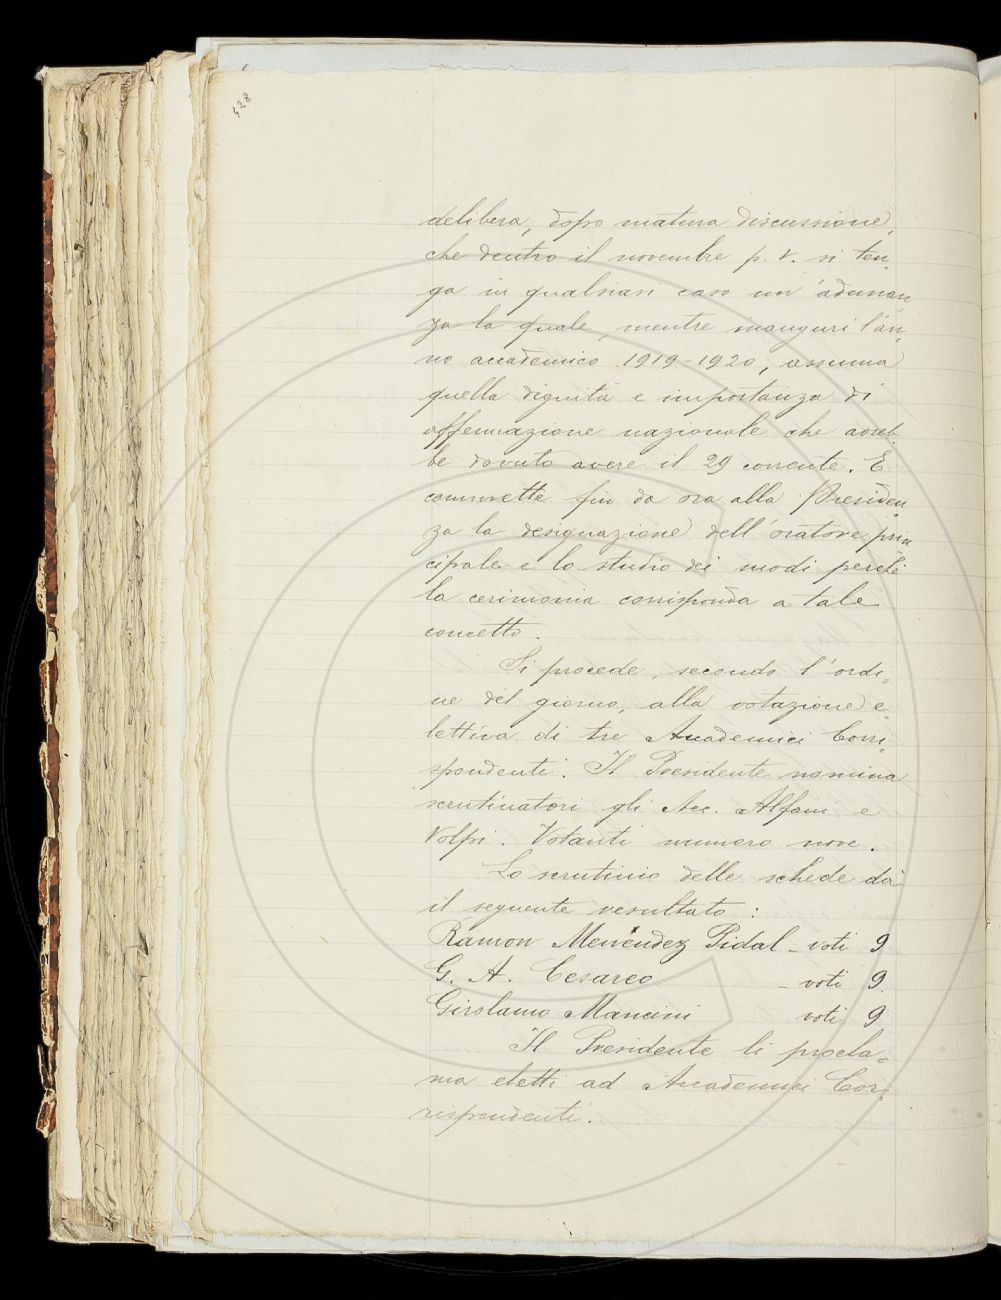 428
delibera, dopo matura discussione,
che dentro il novembre p. v. si ten=
ga in qualsiasi caso un'adunan
za la quale, mentre inauguri l'an=
no accademico 1919-1920, assuma
quella dignità e importanza di
affermazione nazionale che avreb=
be dovuto avere il 29 corrente. E
commette fin da ora alla Presiden=
za la designazione dell'oratore prin
cipale e lo studio dei modi perchè
la cerimonia corrisponda a tale
concetto.
Si procede, secondo l'ordi=
ne del giorno, alla votazione e=
lettiva di tre Accademici Corri=
spondenti. Il Presidente nomina
scrutinatori gli Acc. Alfani e
Volpi. Votanti numero nove.
Lo scrutinio delle schede dà
il seguente resultato:
Ramon Menéndez Pidal - voti 9
G. A. Cesareo - voti 9.
Girolamo Mancini voti 9
Il Presidente li procla=
ma eletti ad Accademici Cor=
rispondenti.